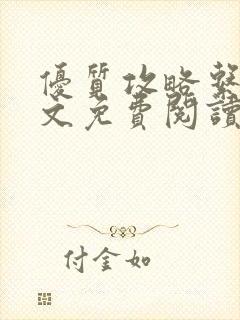 優質攻略繫
文免費閱讀
付金如